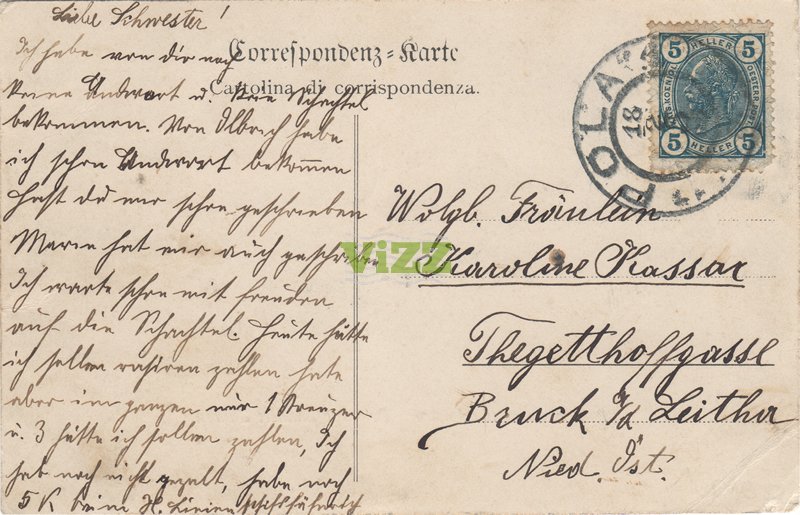 Liebe Schwester!
Ich habe von dir noch
keine Andwort u. kein Schachtel
bekommen. Von Olbrich habe
ich schon Andwort bekommen
hast du mir schon geschrieben
Marie hat mir auch geschrieben
Ich warte schon mit freuden
auf die Schachtel. Heute hätte
ich sollen rasiren zahlen hate
aber im ganzen nur 1 Kreuzer
u. 3 hätte ich sollen zahlen, Ich
hab noch nicht gezalt, habe noch
5 K beim H. Linienschifsfähnrich
Correspondenz-Karte
Cartolina di corrispondenza.
POLA
18
5 HELLER 5
5 HELLER 5
Wolgb. Fräulein
Karoline Kassar
Thegetthoffgasse
Bruck a/d Leitha
Nied. Öst.
ViZZ